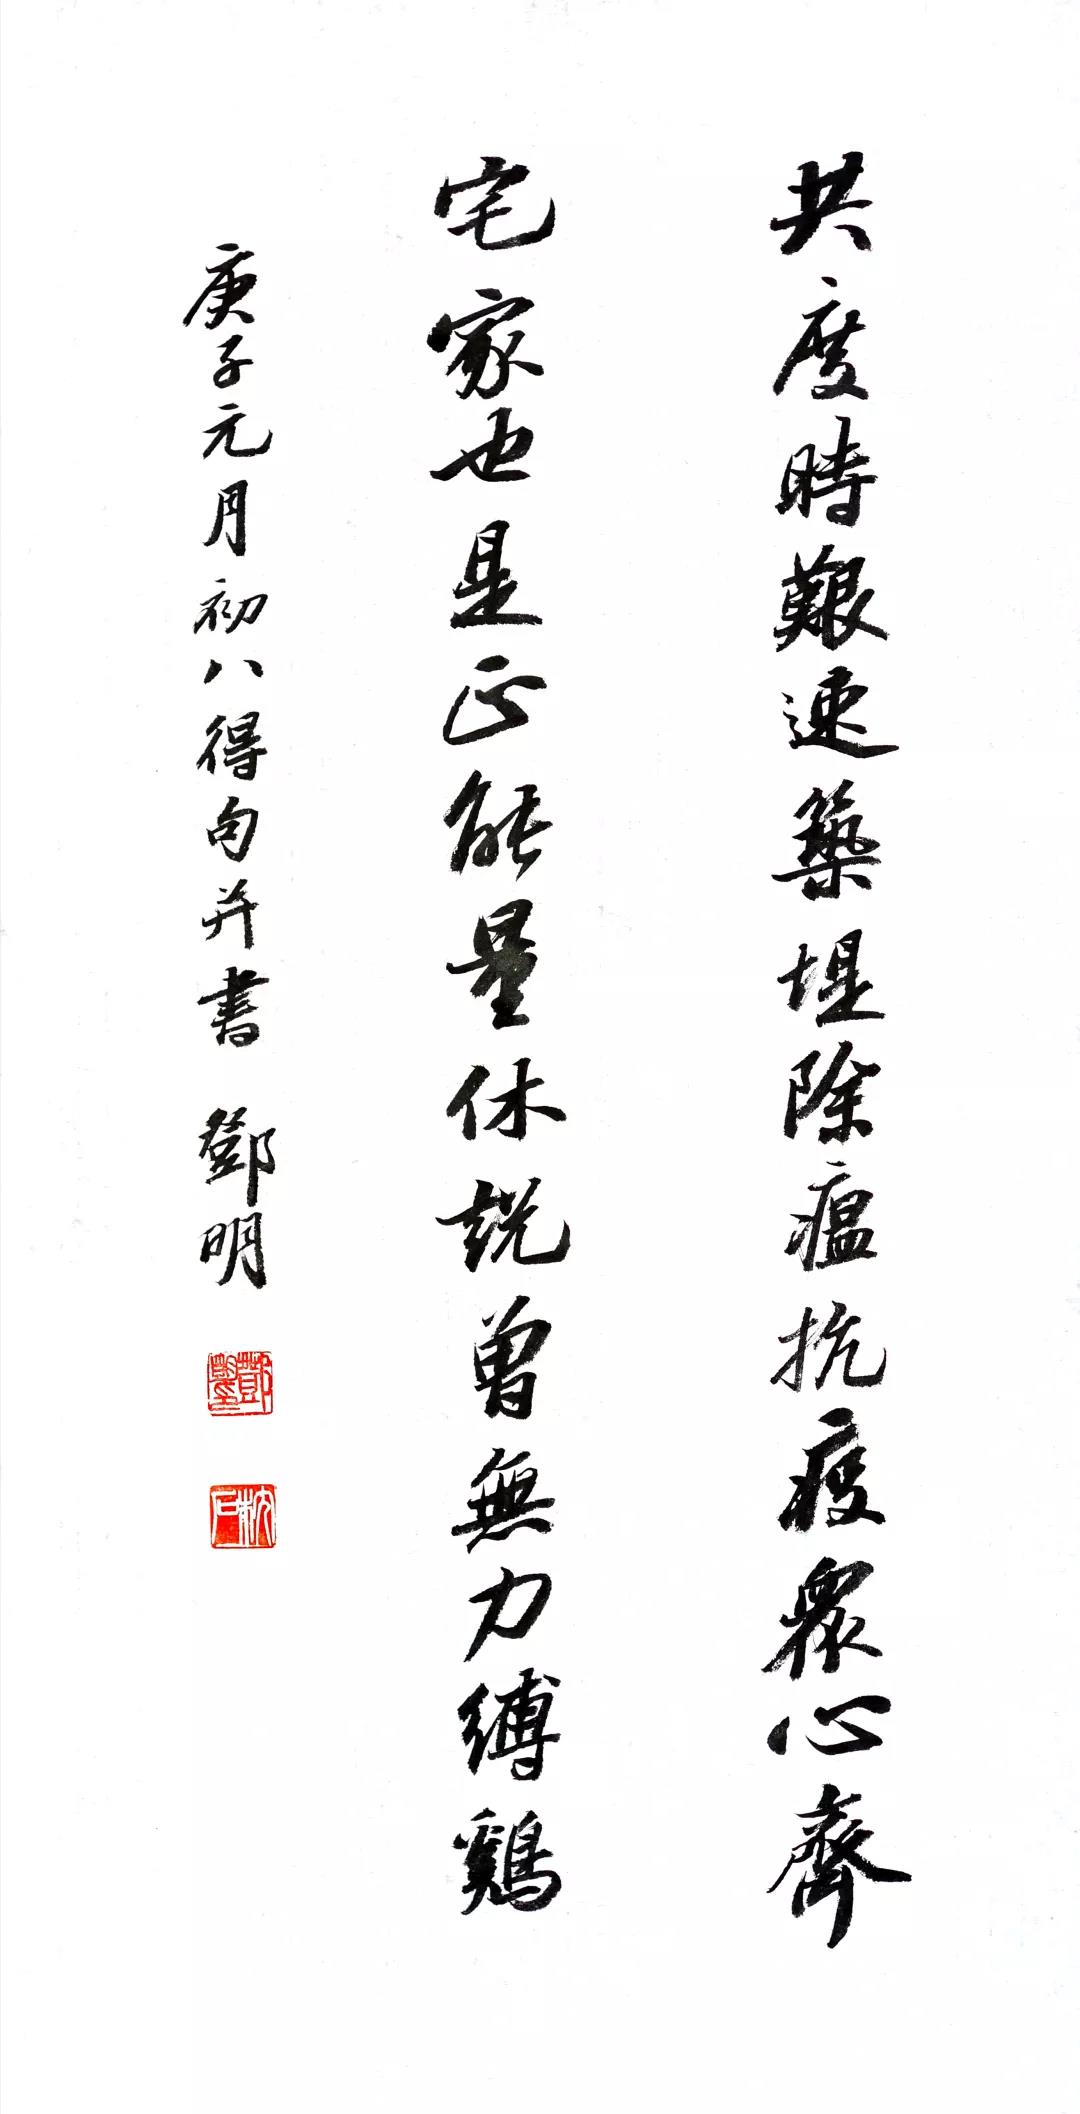 共度時艱速築堤除瘟抗疫眾心齊
宅家也是正能量休説曾無力縛鷄
庚子元月初八得句并書 鄧明